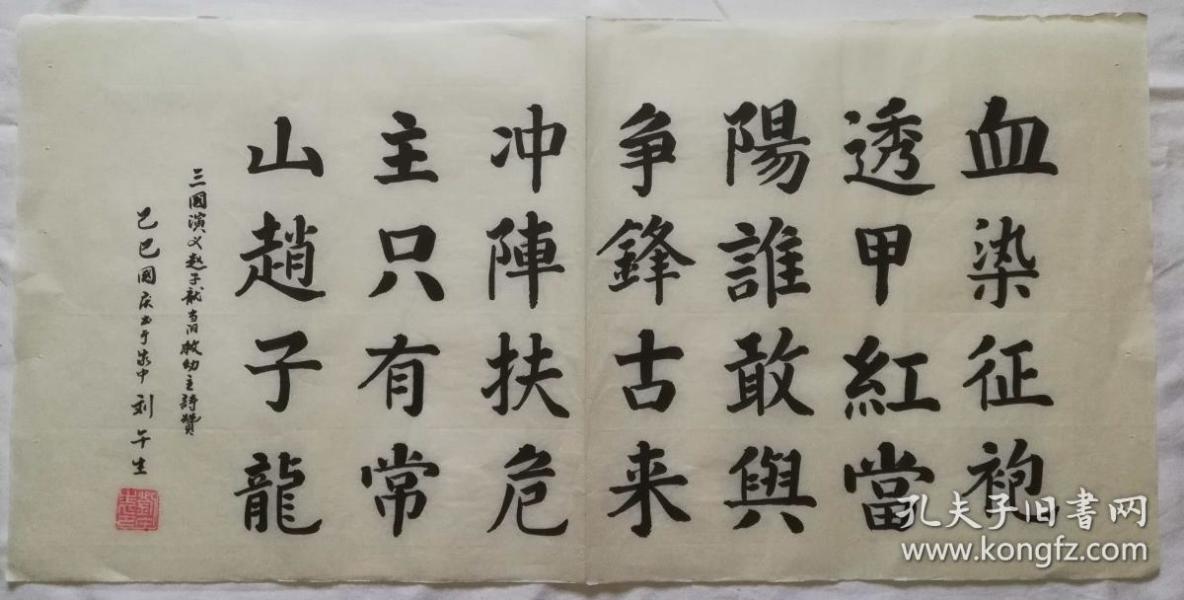 血染征袍
透甲紅當
陽誰敢與
争鋒古来
冲陣扶危
主只有常
山趙子龍
三國演义赵子龙当阳救幼主詩赞
己巳國庆书于家中 刘午生
孔夫子旧书网
www.kongfz.com